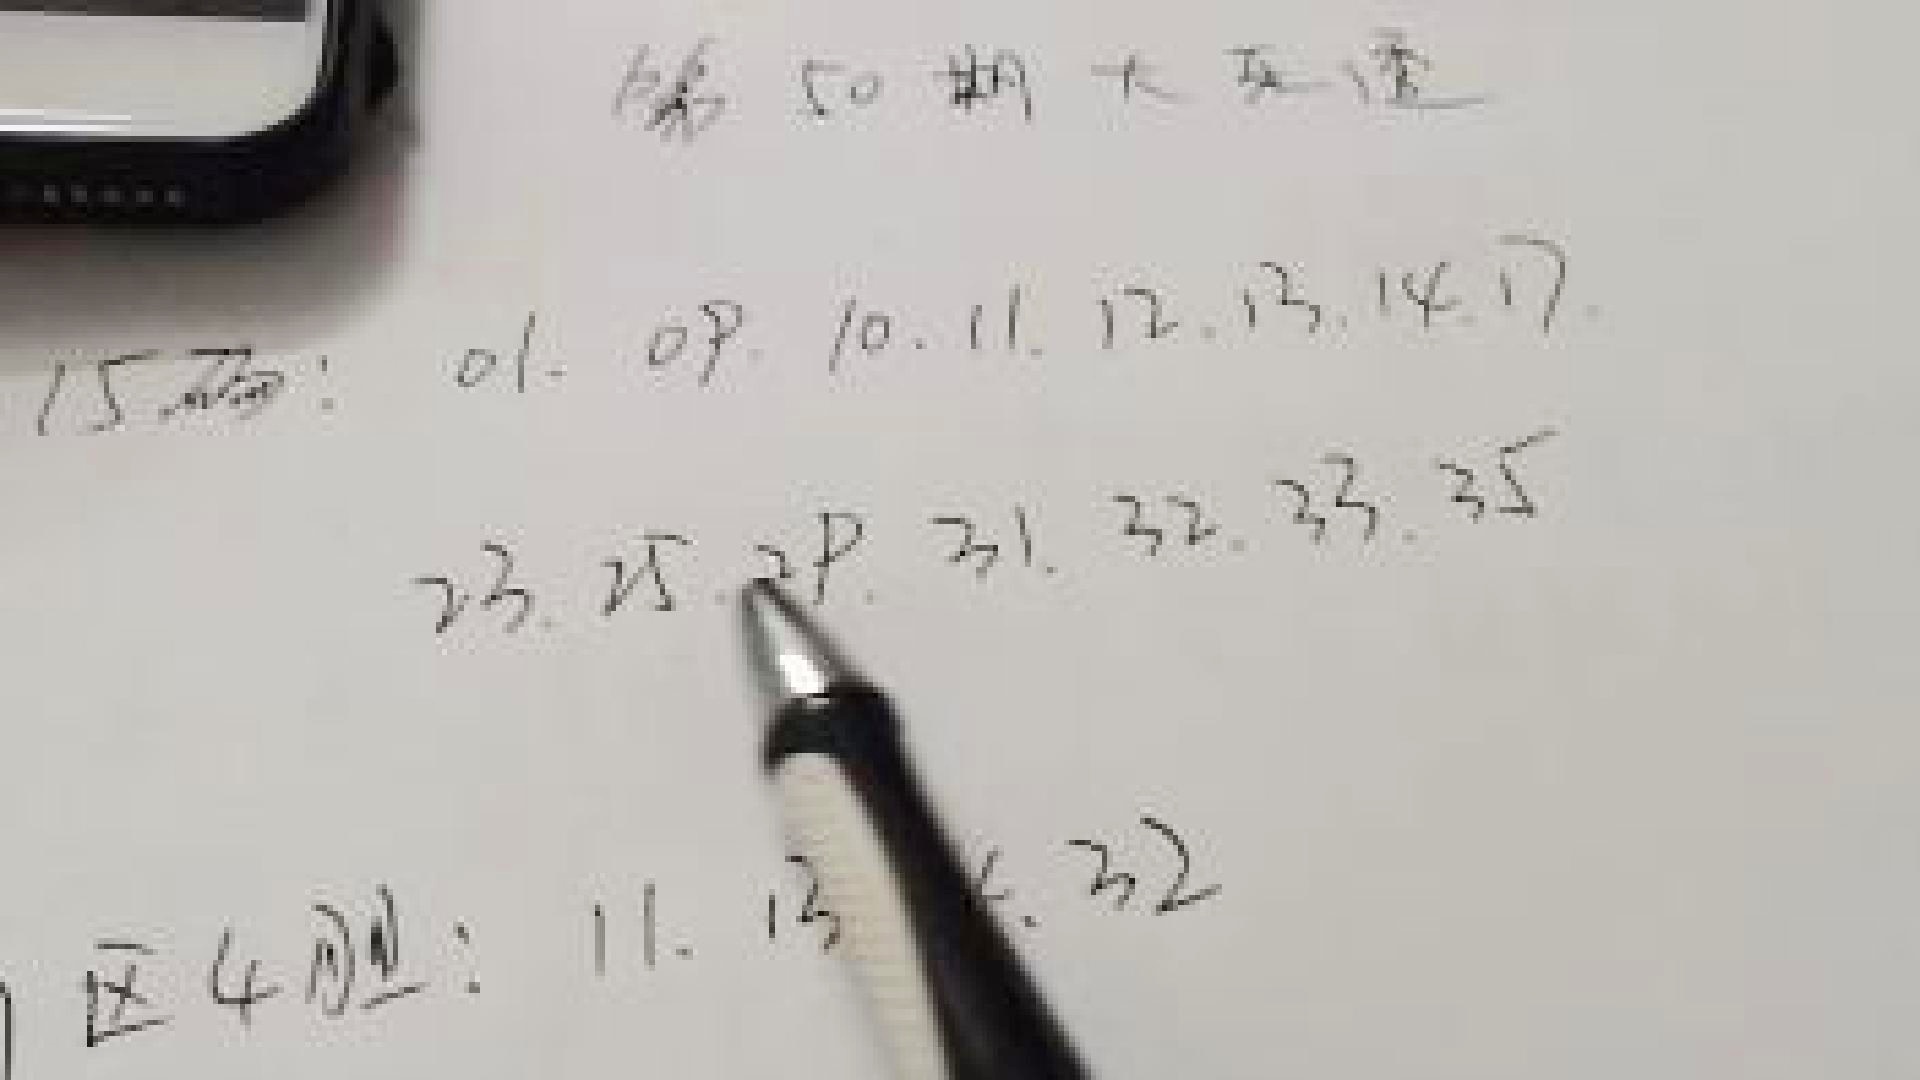 第50期大乐透
15码: 01. 09. 10. 11. 12. 13. 14. 17.
23. 25. 29. 31. 32. 33. 35
区4胆: 11. 13 32